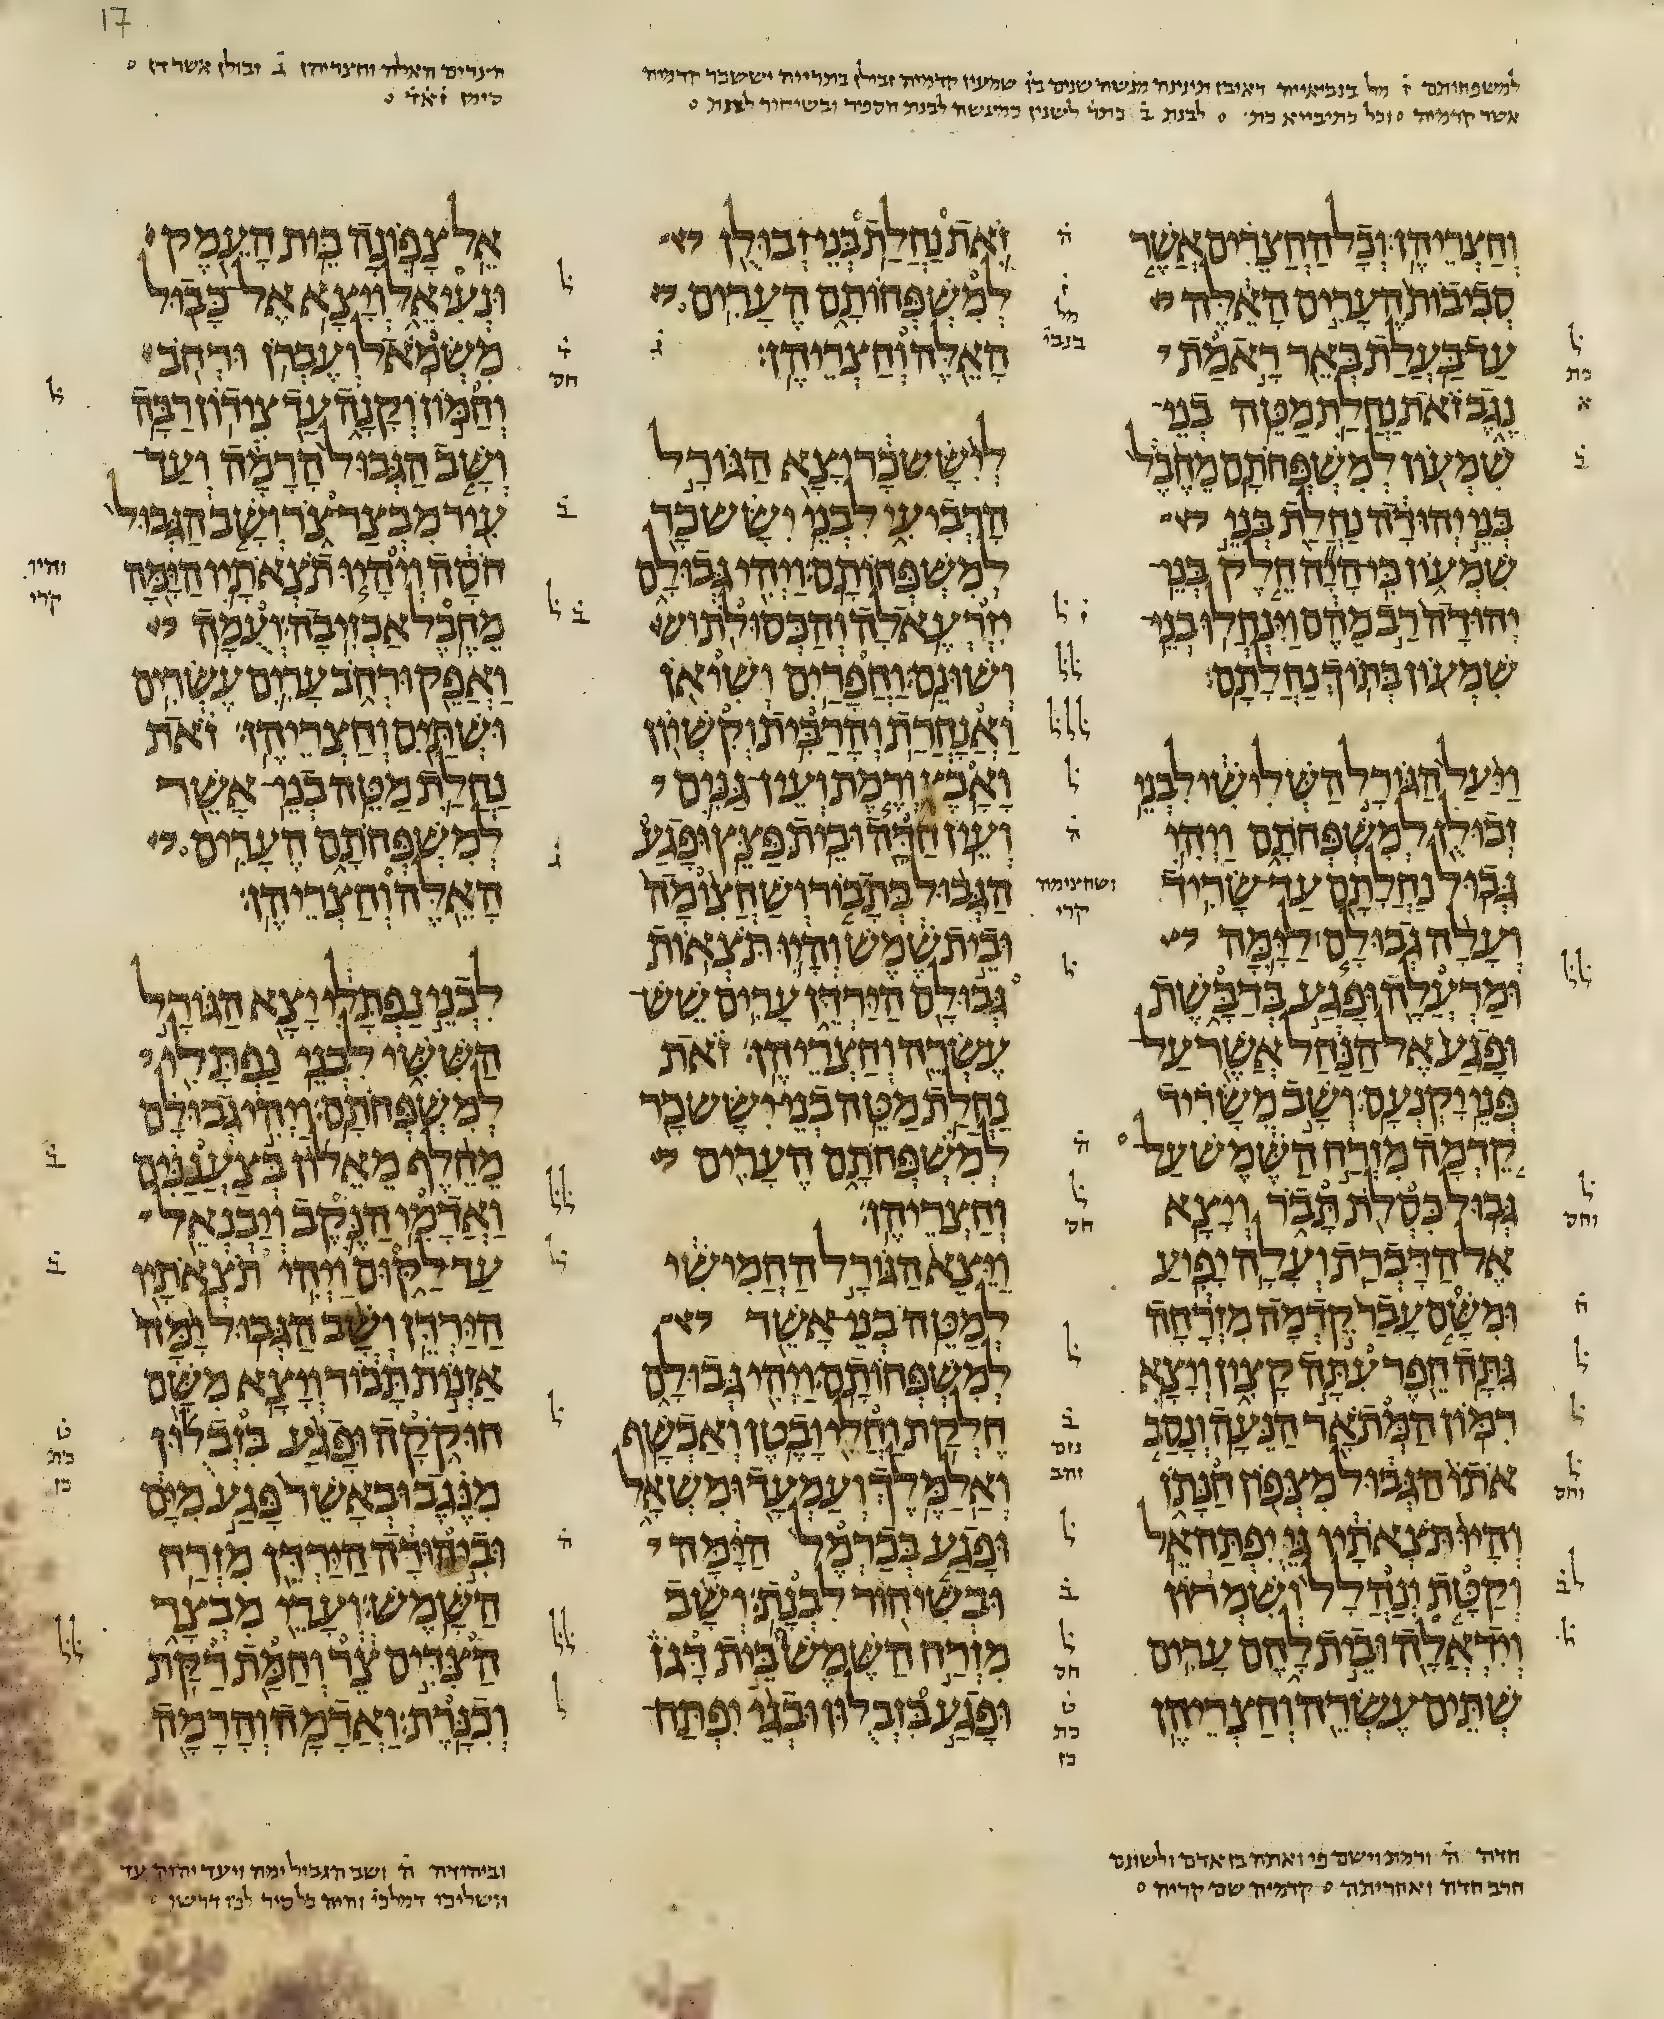 17
למשפחותם ז̇ מל בנביאיה ראובן תינינה מנשה שנים בו שמעון קדמיה זבולן בתריה יששכר קדמיה
אשר קדמיה וכל כתיבייא כת לבנת ב̇ לשנין לבנת הספיר ובשיחור לבנת
הערים האלה וחצריהן ב̇ זבולן אשר דן
סימן זאד
וחצריהן וכל החצרים אשר
סביבות הערים האלה
עד בעלת באר ראמת
נגב זאת נחלת מטה בני
שמעון למשפחתם מחבל
בני יהודה נחלת בני
שמעון כי היה חלק בני
יהודה רב מהם וינחלו בני
שמעון בתוך נחלתם׃
ויעל הגורל השלישי לבני
זבולן למשפחתם ויהי
גבול נחלתם עד שריד
ועלה גבולם לימה
ומרעלה ופגע בדבשת
ופגע אל הנחל אשר על
פני יקנעם׃ ושב משריד
קדמה מזרח השמש על
גבול כסלת תבר ויצא
אל הדברת ועלה יפיע
ומשם עבר קדמה מזרחה
גתה חפר עתה קצין ויצא
רמון המתאר הנעה ונסב
אתו הגבול מצפון חנתן
והיו תצאתיו גי יפתחאל
וקטת ונהלל ושמרון
וידאלה ובית לחם ערים
שתים עשרה וחצריהן
זאת נחלת בני זבולן
למשפחותם הערים
האלה וחצריהן׃
ליששכר יצא הגורל
הרביעי לבני יששכר
למשפחותם׃ ויהי גבולם
יזרעאלה והכסולת ושו
ושונם׃ וחפרים ושיאן
ואנחרת והרבית וקשיון
ואבץ ורמת ועין גנים
ועין חדה ובית פצץ ופגע
הגבול בתבור ושחצומה
ובית שמש והיו תצאות
גבולם הירדן ערים שש
עשרה וחצריהן׃ זאת
נחלת מטה בני יששכר
למשפחתם הערים
וחצריהן׃
ויצא הגורל החמישי
למטה בני אשר
למשפחותם׃ ויהי גבולם
חלקת וחלי ובטן ואכשף
ואלמלך ועמעד ומשאל
ופגע בכרמל הימה
ובשיחור לבנת׃ ושב
מזרח השמש בית דגן
ופגע בזבלון ובגי יפתח
אל צפונה בית העמק
ונעיאל ויצא אל כבול
משמאל ועברן ורחב
וחמון וקנה עד צידון רבה
ושב הגבול הרמה ועד
עיר מבצר צר ושב הגבול
חסה ויהיו תצאתיו הימה
מחבל אכזיבה׃ ועמה
ואפק ורחב ערים עשרים
ושתים וחצריהן׃ זאת
נחלת מטה בני אשר
למשפחתם הערים
האלה וחצריהן׃
לבני נפתלי יצא הגורל
הששי לבני נפתלי
למשפחתם׃ ויהי גבולם
מחלף מאלון בצעננים
ואדמי הנקב ויבנאל
עד לקום ויהי תצאתיו
הירדן׃ ושב הגבול ימה
אזנות תבור ויצא משם
חוקקה ופגע בזבלון
מנגב ובאשר פגע מים
וביהודה הירדן מזרח
השמש׃ וערי מבצר
הצדים צר וחמת רקת
וכנרת׃ ואדמה והרמה
ושחצימה
קרי
והיו
קרי
חדה ה̇ ורמת וישם פי ואתה בן אדם
חרב חדה ואחריתה קדמיה
וביהודה ה̇ ושב הגבול ימה ויעד יהוה